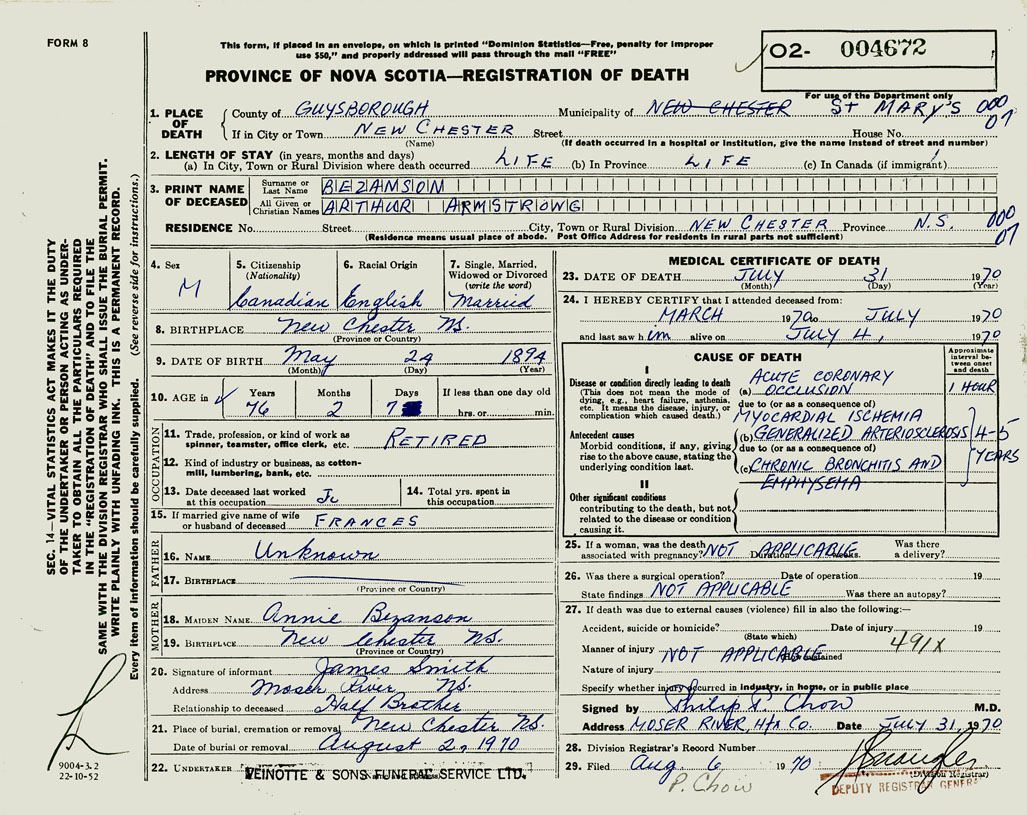 FORM 8
This form, if placed in an envelope, on which is printed "Dominion Statistics—Free, penalty for improper
use $50," and properly addressed will pass through the mail "FREE"
O2- 004672
For use of the Department only
PROVINCE OF NOVA SCOTIA—REGISTRATION OF DEATH
SEC. 14—VITAL STATISTICS ACT MAKES IT THE DUTY
OF THE UNDERTAKER OR PERSON ACTING AS UNDER-
TAKER TO OBTAIN ALL THE PARTICULARS REQUIRED
IN THE "REGISTRATION OF DEATH" AND TO FILE THE
SAME WITH THE DIVISION REGISTRAR WHO SHALL ISSUE THE BURIAL PERMIT.
WRITE PLAINLY WITH UNFADING INK. THIS IS A PERMANENT RECORD.
Every item of information should be carefully supplied. (See reverse side for instructions.)
1. PLACE OF DEATH County of GUYSBOROUGH Municipality of NEW CHESTER ST MARY'S 000 07
If in City or Town NEW CHESTER Street House No.
(Name) (If death occurred in a hospital or institution, give the name instead of street and number)
2. LENGTH OF STAY (in years, months and days)
(a) In City, Town or Rural Division where death occurred LIFE (b) In Province LIFE (c) In Canada (if immigrant)
3. PRINT NAME OF DECEASED Surname or Last Name BEZANSON
All Given or Christian Names ARTHUR ARMSTRONG
RESIDENCE No. Street City, Town or Rural Division NEW CHESTER Province N.S. 000 07
(Residence means usual place of abode. Post Office Address for residents in rural parts not sufficient)
4. Sex M
5. Citizenship (Nationality) Canadian
6. Racial Origin English
7. Single, Married, Widowed or Divorced (write the word) Married
8. BIRTHPLACE New Chester NS.
(Province or Country)
9. DATE OF BIRTH May 24 1894
(Month) (Day) (Year)
10. AGE in Years 76 Months 2 Days 7 If less than one day old hrs. or min.
OCCUPATION
11. Trade, profession, or kind of work as spinner, teamster, office clerk, etc. RETIRED
12. Kind of industry or business, as cotton-mill, lumbering, bank, etc.
13. Date deceased last worked at this occupation
14. Total yrs. spent in this occupation
15. If married give name of wife or husband of deceased FRANCES
FATHER
16. NAME Unknown
17. BIRTHPLACE
(Province or Country)
MOTHER
18. MAIDEN NAME Annie Bezanson
19. BIRTHPLACE New Chester NS.
(Province or Country)
20. Signature of informant James Smith
Address Moser River NS.
Relationship to deceased Half Brother
21. Place of burial, cremation or removal New Chester NS.
Date of burial or removal August 2, 1970
22. UNDERTAKER VEINOTTE & SONS FUNERAL SERVICE LTD.
9004-3.2
22-10-52
MEDICAL CERTIFICATE OF DEATH
23. DATE OF DEATH JULY 31 1970
(Month) (Day) (Year)
24. I HEREBY CERTIFY that I attended deceased from:
MARCH 1970 to JULY 1970
and last saw him alive on JULY 4, 1970
CAUSE OF DEATH
Approximate interval between onset and death
I
Disease or condition directly leading to death
(This does not mean the mode of dying, e.g., heart failure, asthenia, etc. It means the disease, injury, or complication which caused death.)
(a) ACUTE CORONARY OCCLUSION 1 HOUR
due to (or as a consequence of)
MYOCARDIAL ISCHEMIA
Antecedent causes
Morbid conditions, if any, giving rise to the above cause, stating the underlying condition last.
(b) GENERALIZED ARTERIOSCLEROSIS 4-5 YEARS
due to (or as a consequence of)
(c) CHRONIC BRONCHITIS AND EMPHYSEMA
II
Other significant conditions
contributing to the death, but not related to the disease or condition causing it.
25. If a woman, was the death associated with pregnancy? NOT APPLICABLE Duration weeks. Was there a delivery?
26. Was there a surgical operation? Date of operation 19
State findings NOT APPLICABLE Was there an autopsy?
27. If death was due to external causes (violence) fill in also the following:—
Accident, suicide or homicide? Date of injury 19
(State which)
Manner of injury NOT APPLICABLE 491X
Nature of injury
Specify whether injury occurred in industry, in home, or in public place
Signed by Philip P. Chow M.D.
Address MOSER RIVER, Hfx Co. Date JULY 31, 1970
28. Division Registrar's Record Number
29. Filed Aug. 6 1970
(Division Registrar)
DEPUTY REGISTRAR GENERAL
P. Chow